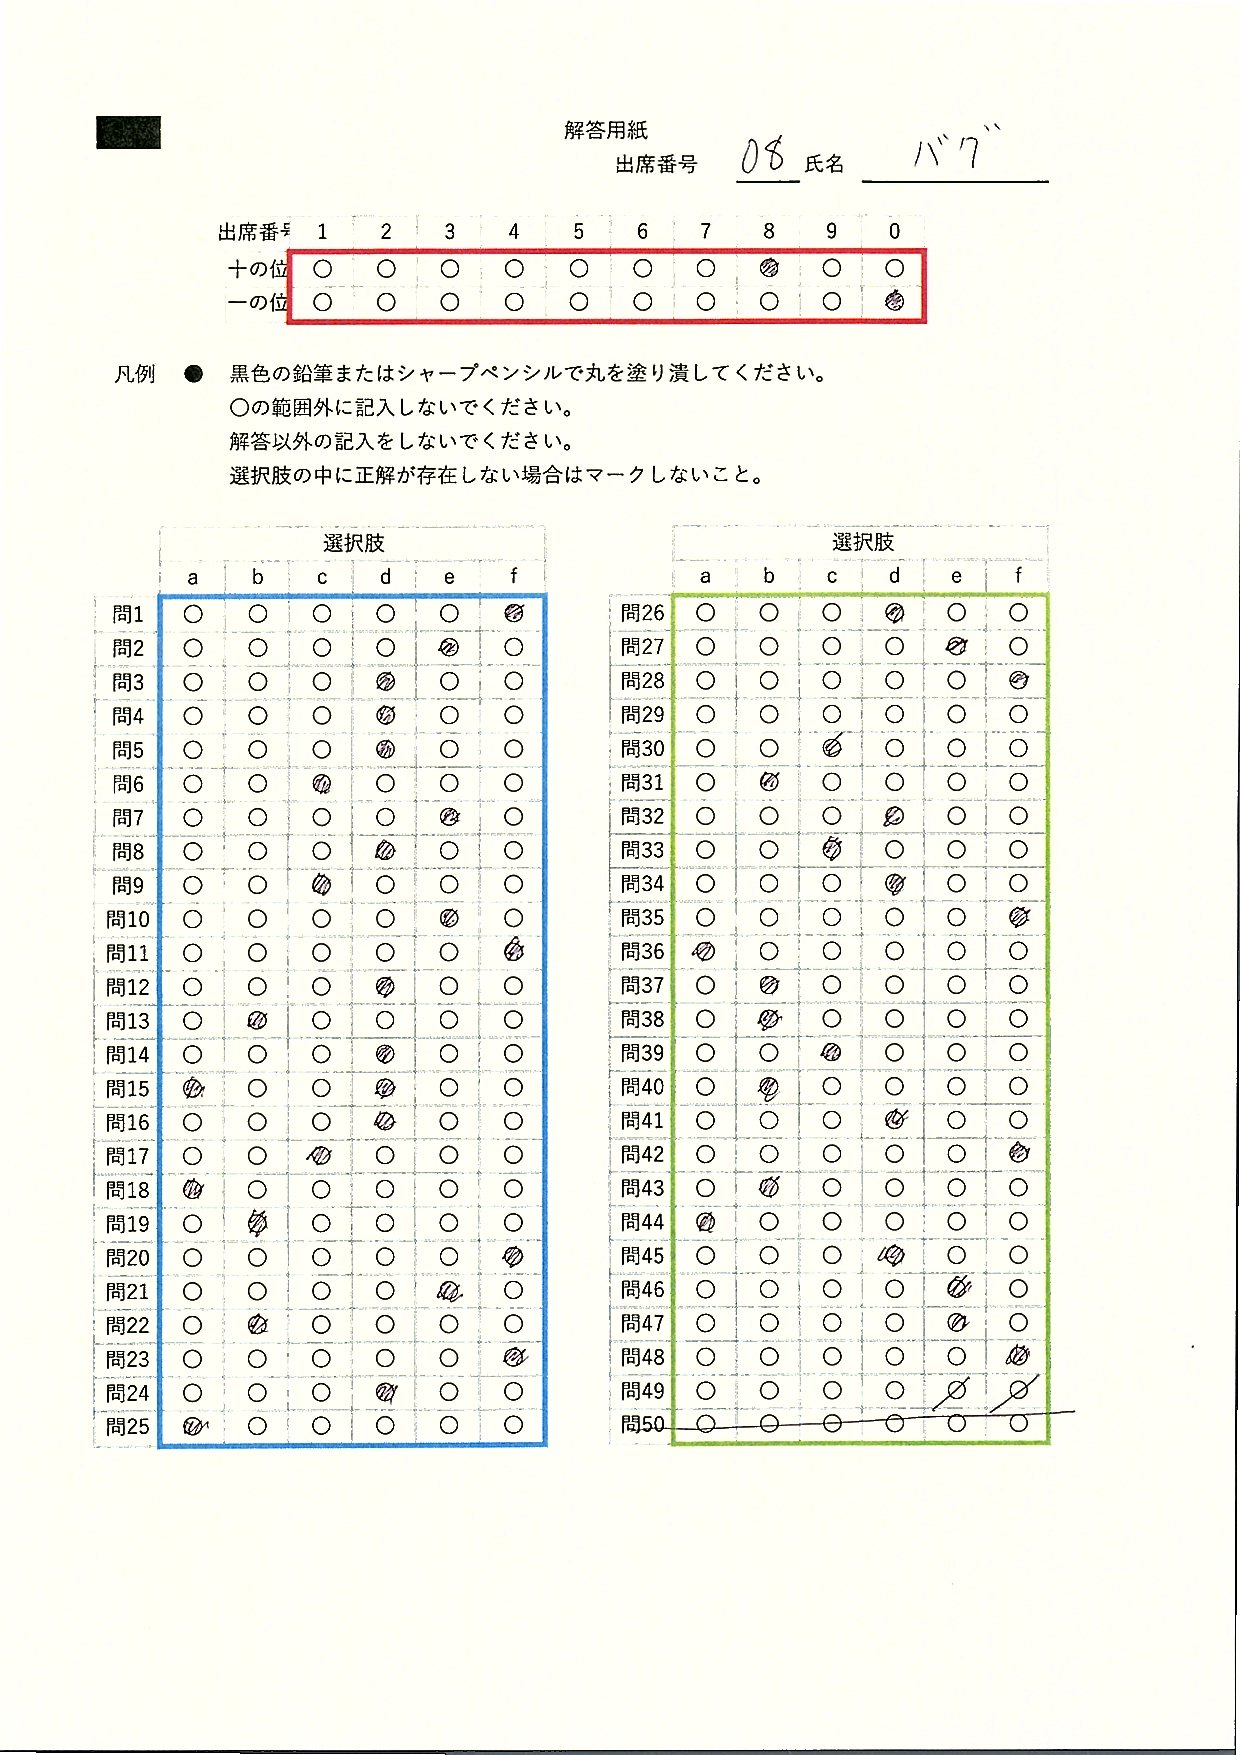 解答用紙
出席番号 08 氏名 バグ
出席番号 1 2 3 4 5 6 7 8 9 0
十の位
一の位
凡例 ● 黒色の鉛筆またはシャープペンシルで丸を塗り潰してください。
〇の範囲外に記入しないでください。
解答以外の記入をしないでください。
選択肢の中に正解が存在しない場合はマークしないこと。
選択肢
a b c d e f
問1
問2
問3
問4
問5
問6
問7
問8
問9
問10
問11
問12
問13
問14
問15
問16
問17
問18
問19
問20
問21
問22
問23
問24
問25
選択肢
a b c d e f
問26
問27
問28
問29
問30
問31
問32
問33
問34
問35
問36
問37
問38
問39
問40
問41
問42
問43
問44
問45
問46
問47
問48
問49
問50